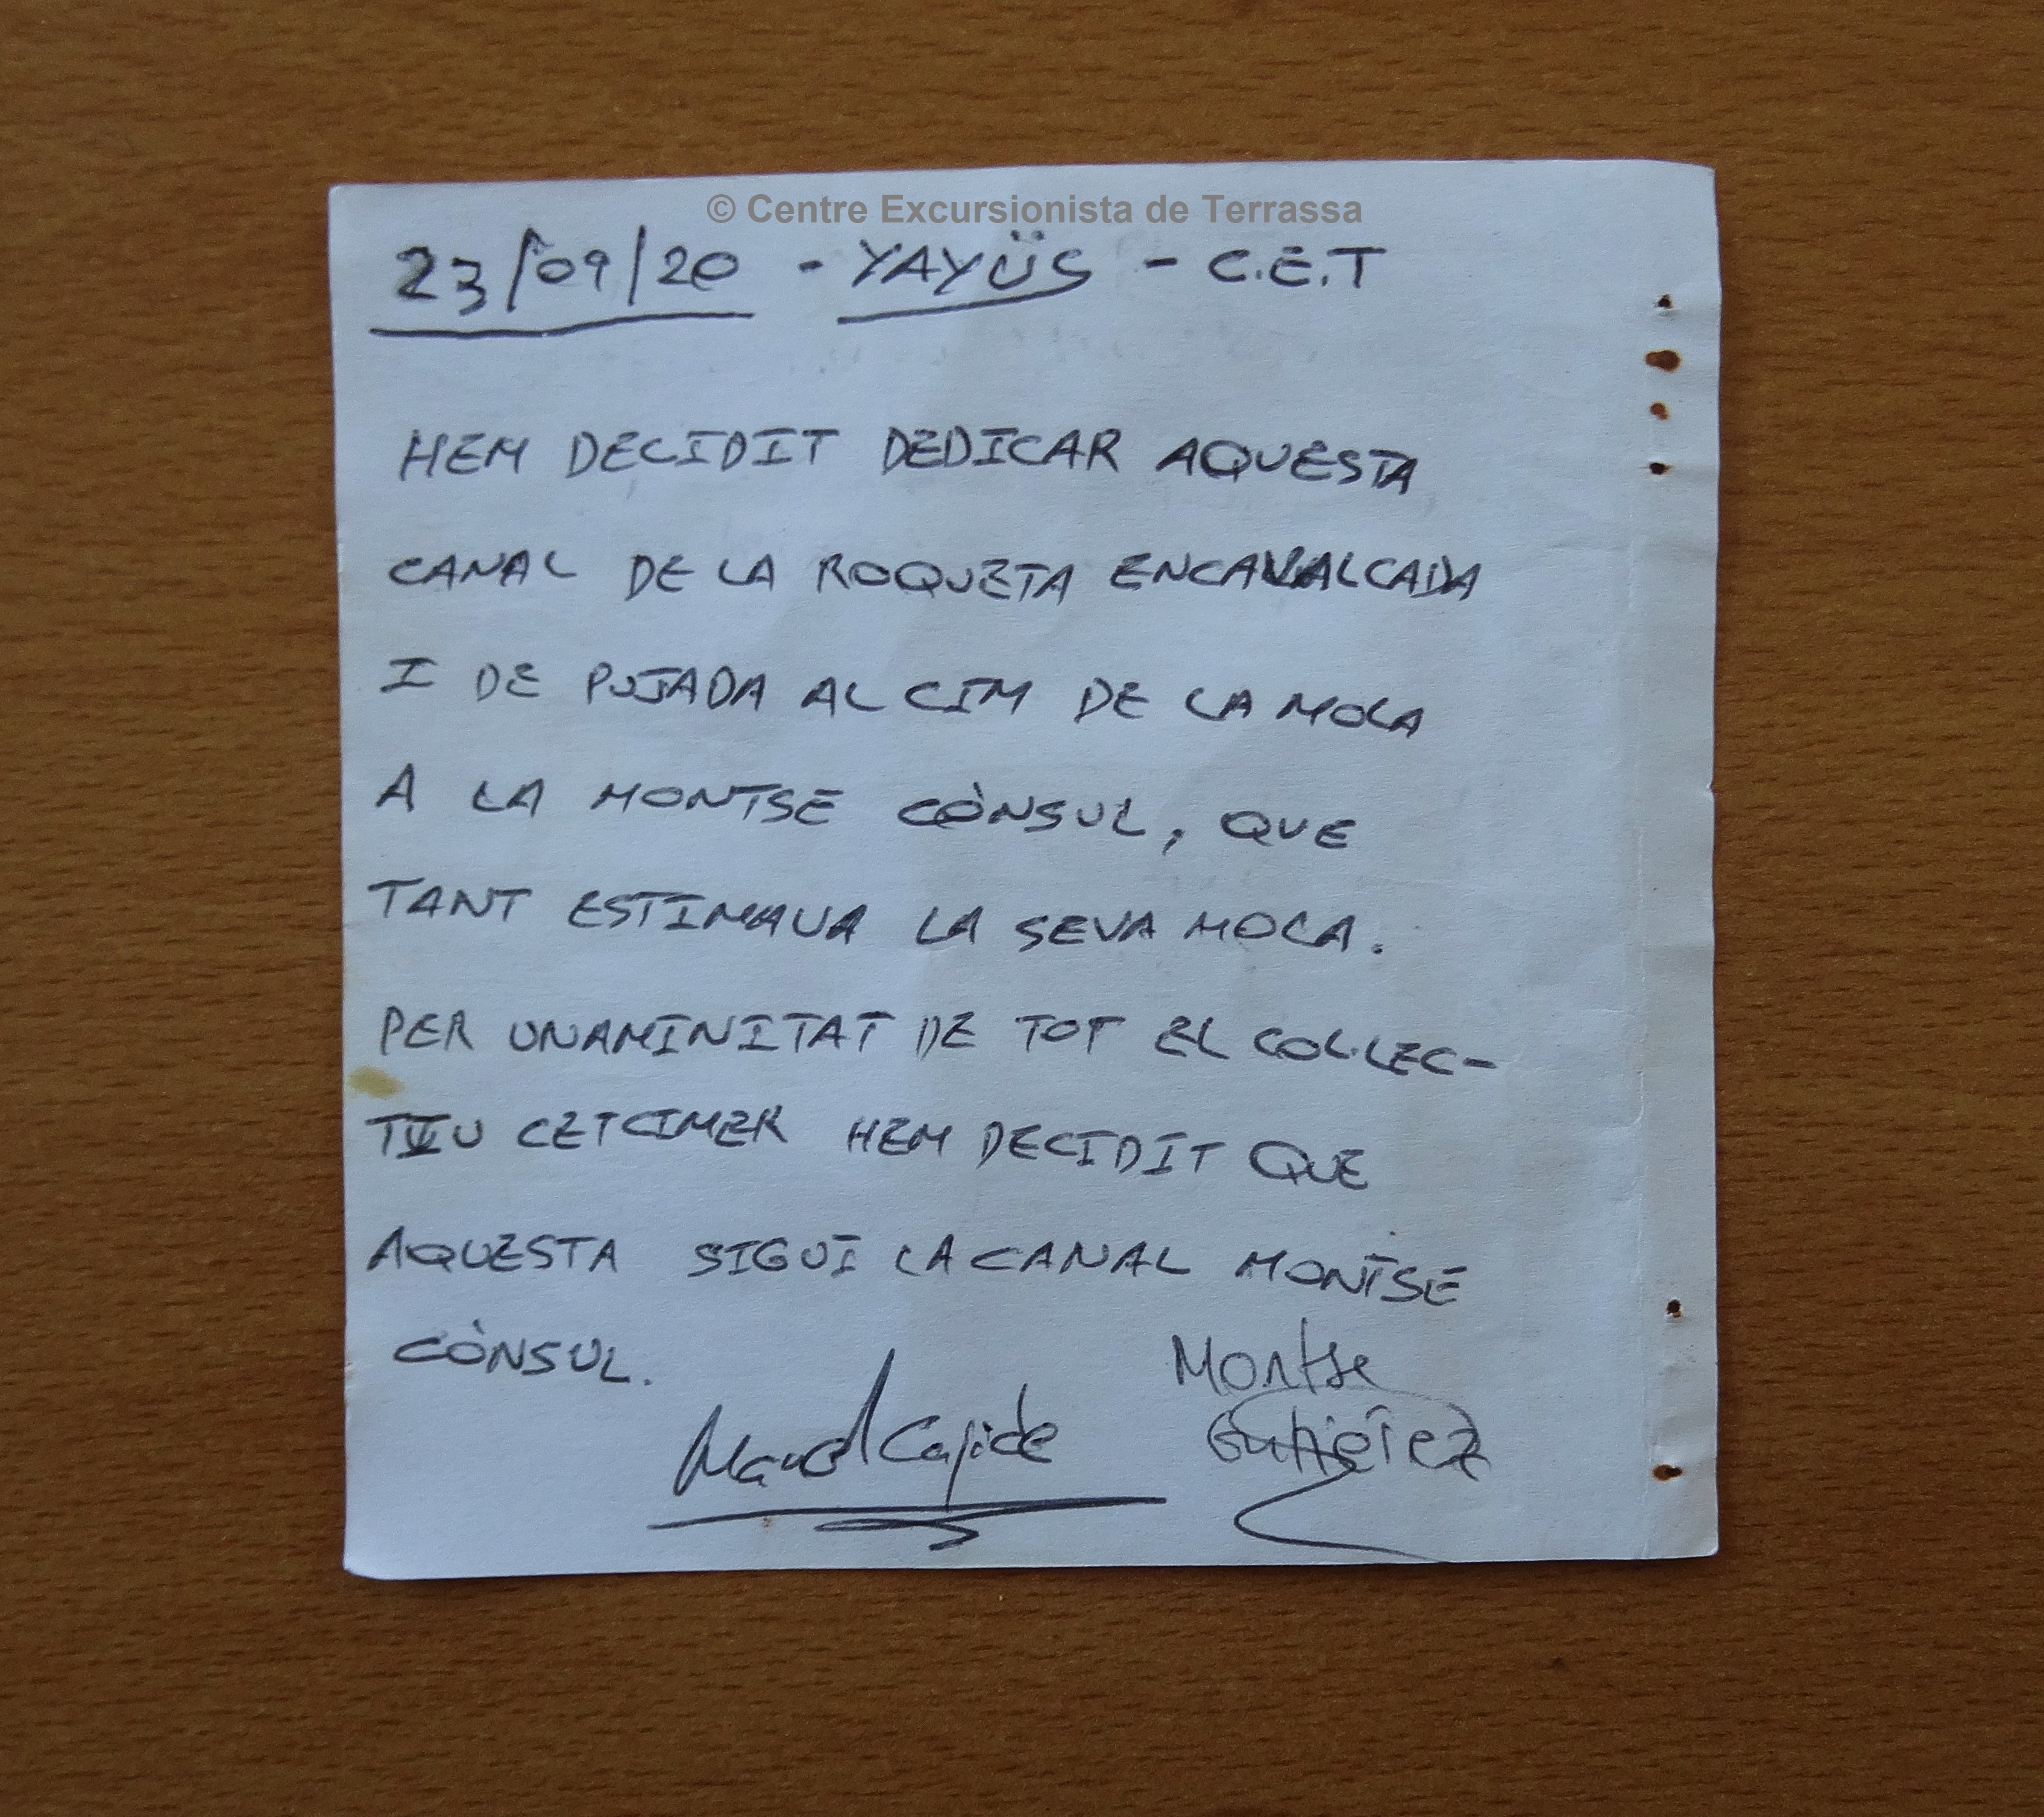 © Centre Excursionista de Terrassa
23/09/20 - YAYÜS - C.E.T
HEM DECIDIT DEDICAR AQUESTA
CANAL DE LA ROQUETA ENCAVALCADA
I DE PUJADA AL CIM DE LA MOLA
A LA MONTSE CÒNSUL, QUE
TANT ESTIMAVA LA SEVA MOLA.
PER UNAMINITAT DE TOT EL COL·LEC-
TIU CETCIMER HEM DECIDIT QUE
AQUESTA SIGUI LA CANAL MONTSE
CÒNSUL.
Manel Cajide
Montse
Gutiérrez